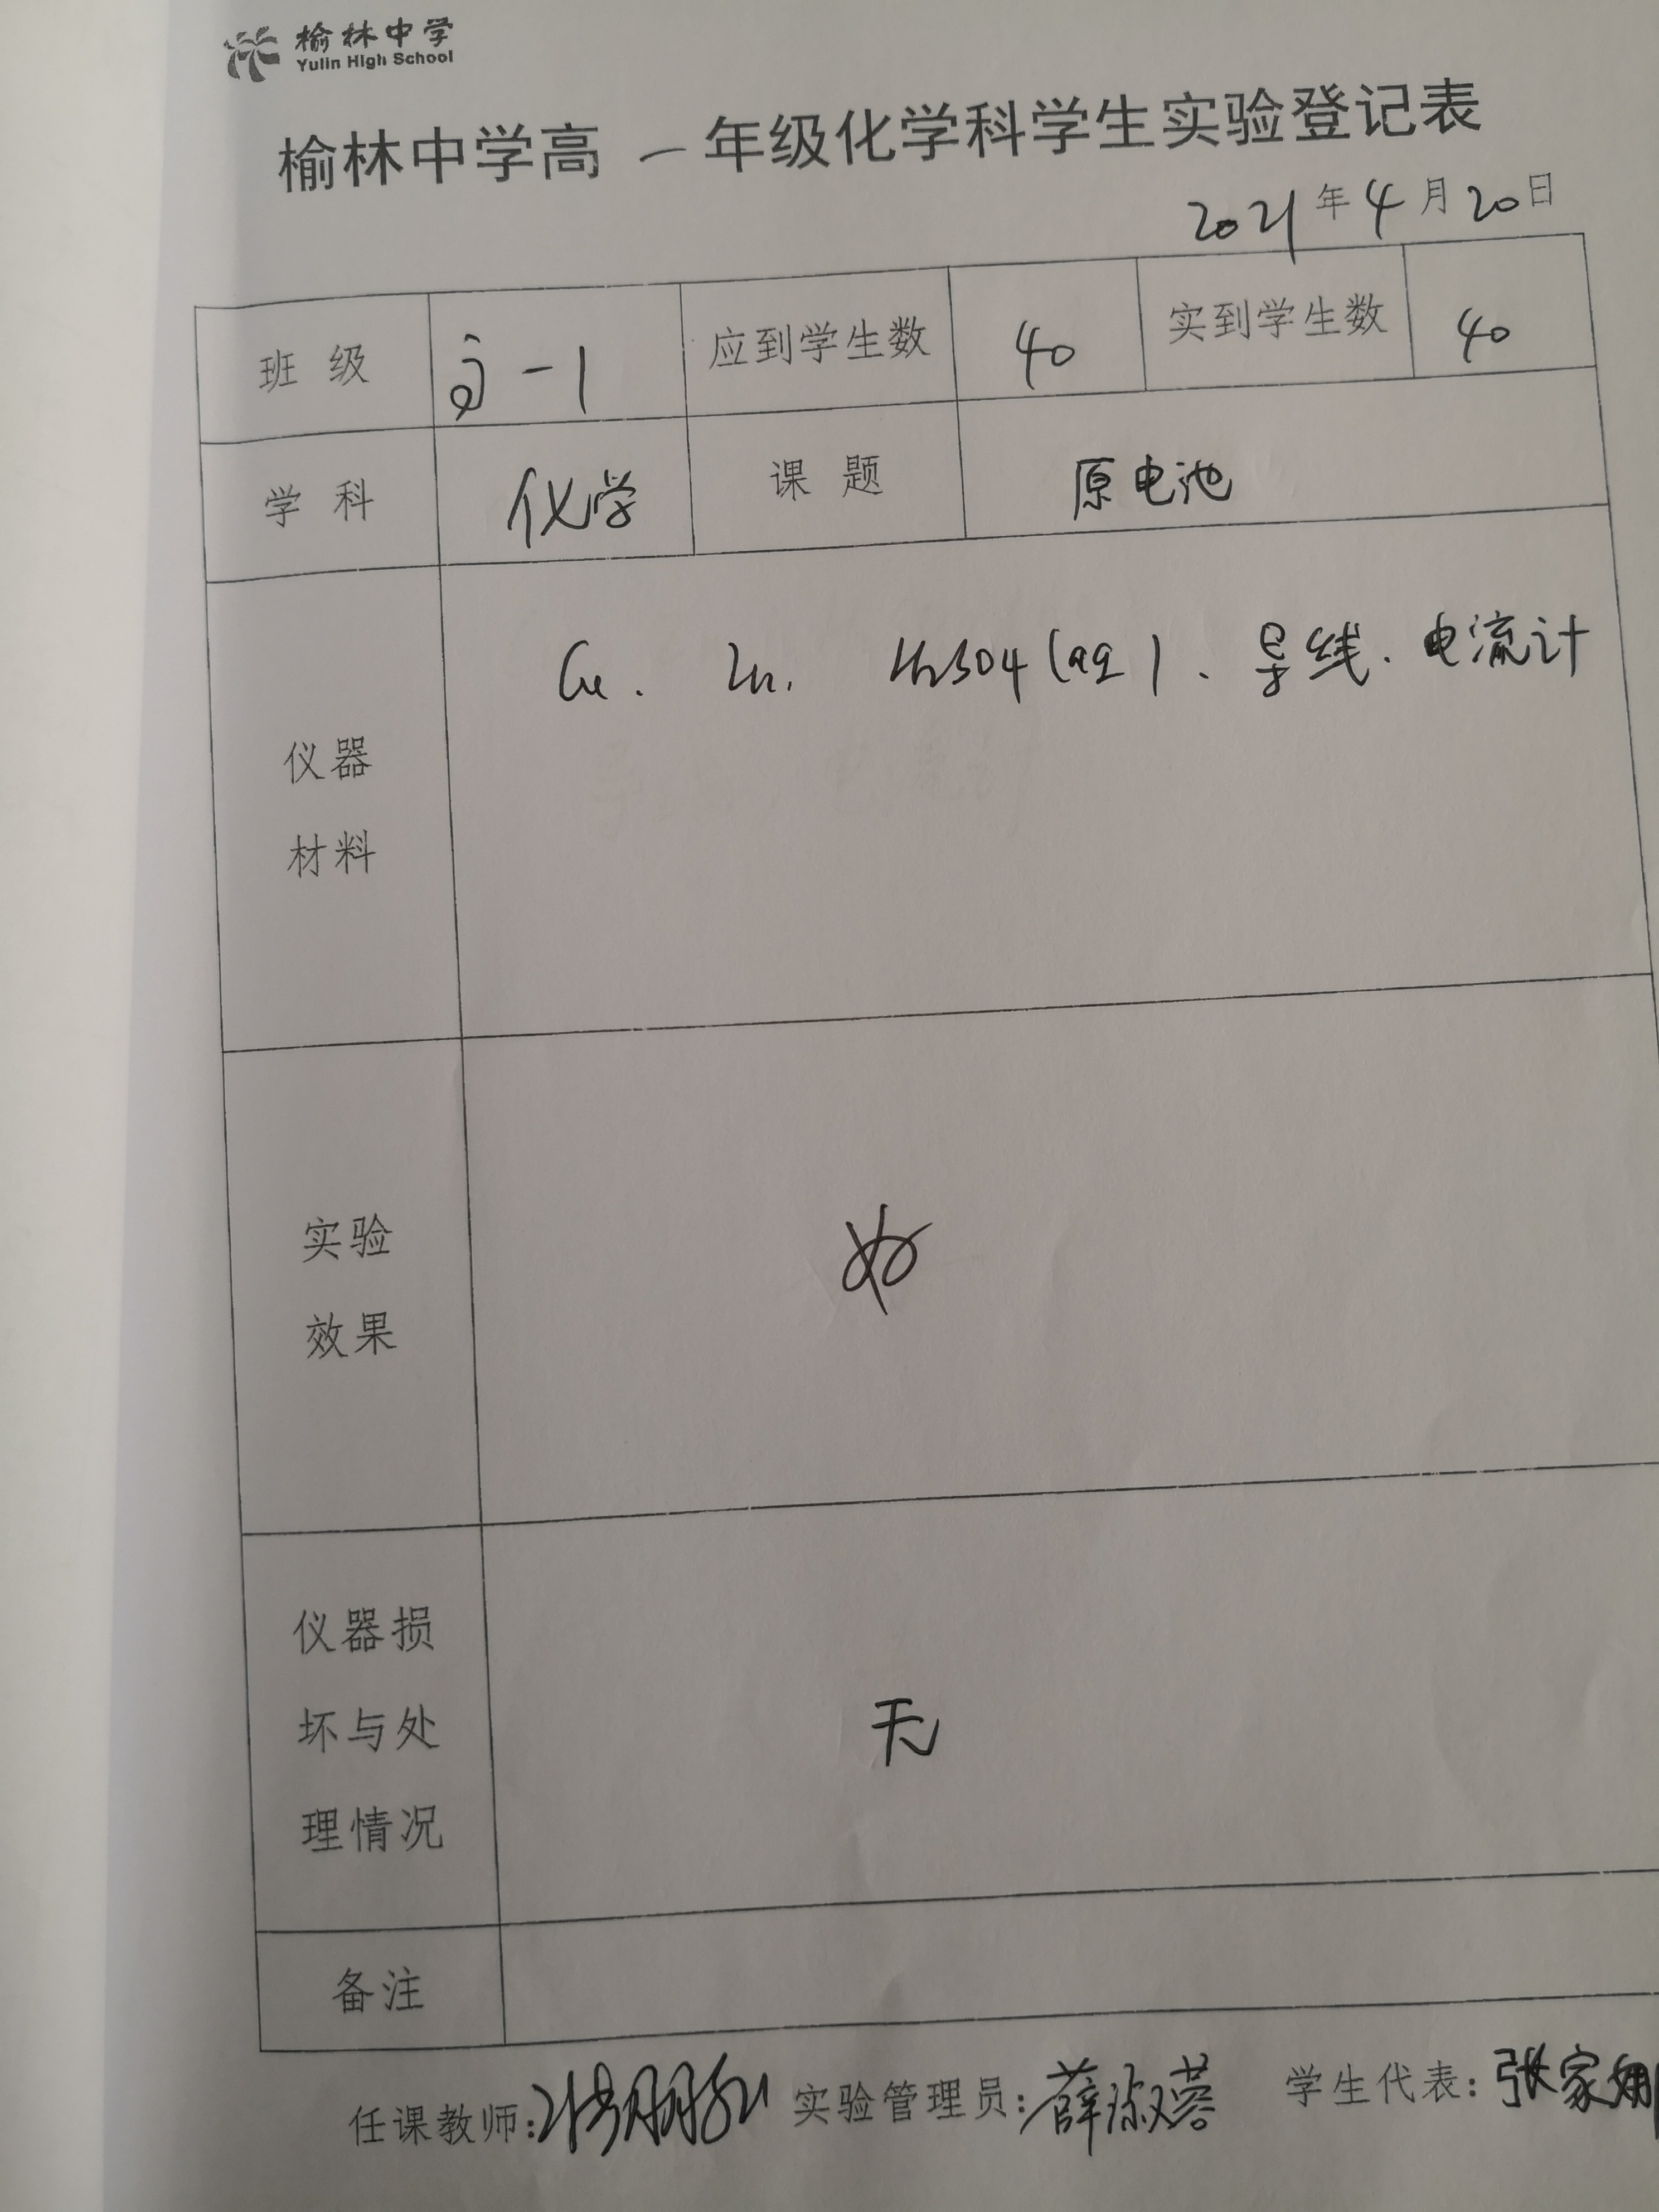 榆林中学
Yulin High School
榆林中学高 一 年级化学科学生实验登记表
2021 年 4 月 20 日
班 级 高-1 应到学生数 40 实到学生数 40
学 科 化学 课 题 原电池
仪器
材料
Cu. Zn. H2SO4(aq)、导线、电流计
实验
效果
好
仪器损
坏与处
理情况
无
备注
任课教师: 实验管理员:薛淑蓉 学生代表:张家